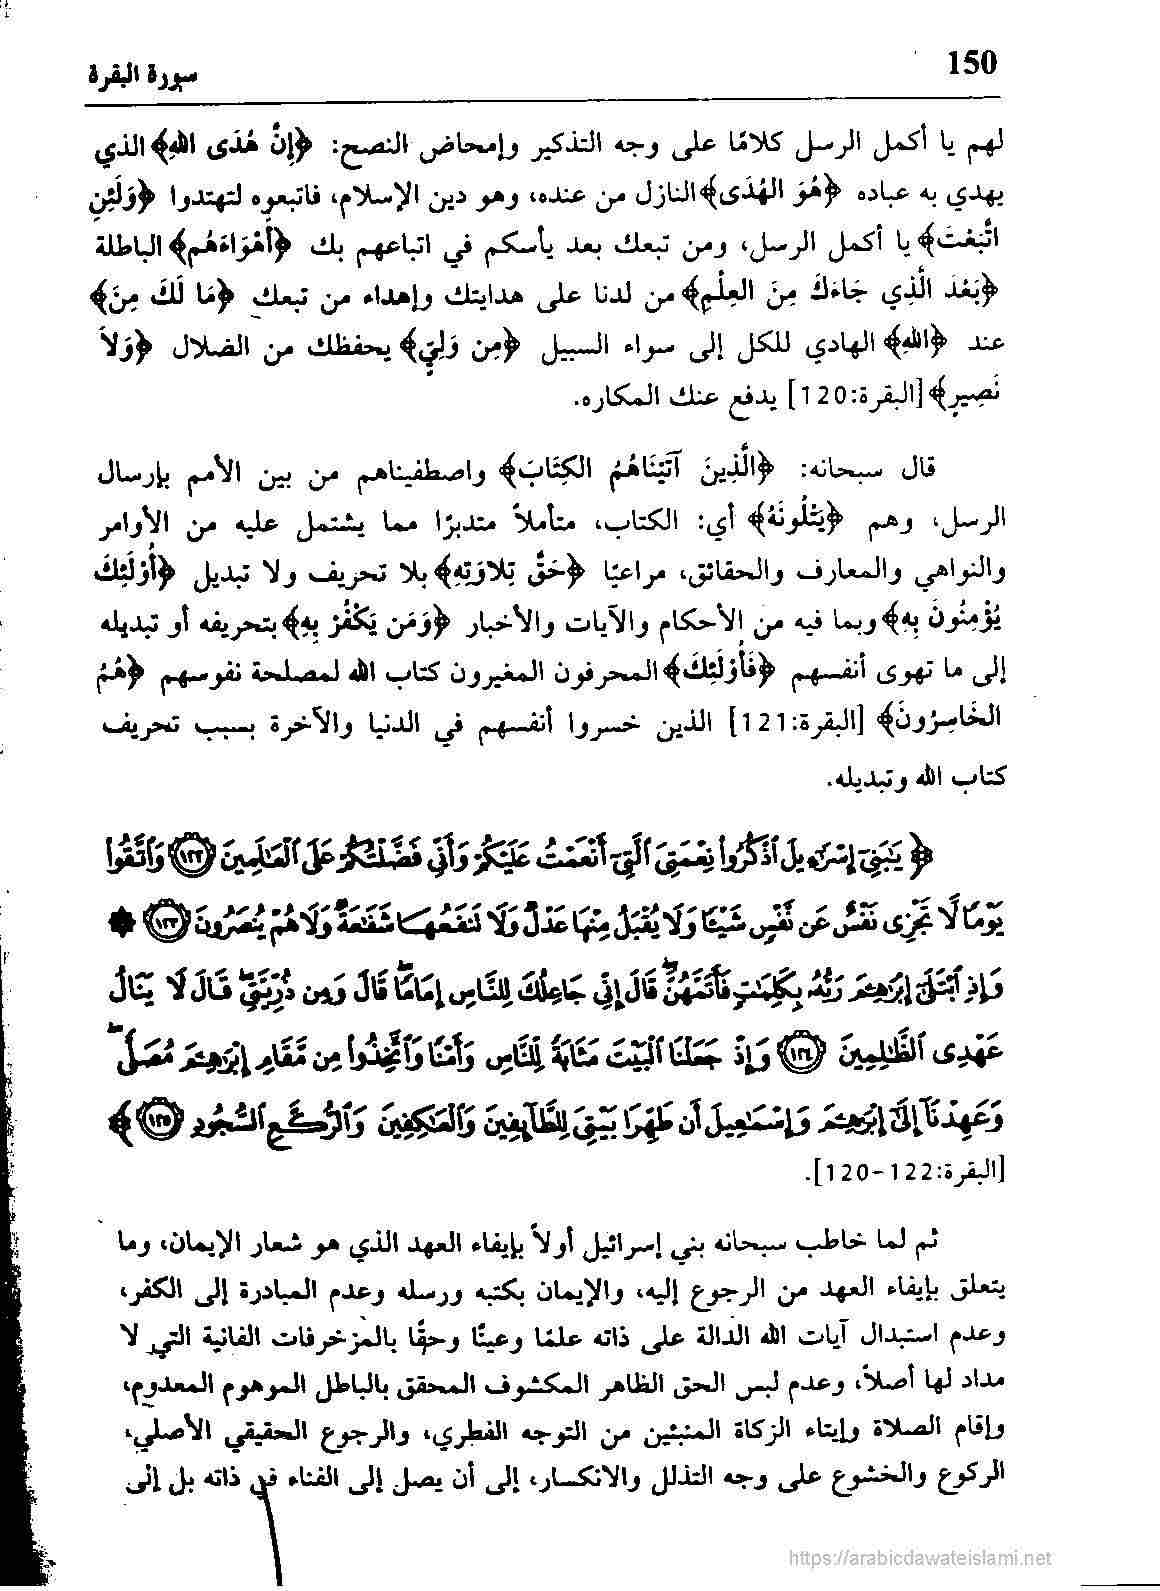 150
سورة البقرة
لهم يا أكمل الرسل كلامًا على وجه التذكير وإمحاض النصح: ﴿إِنَّ هُدَى اللهِ﴾ الذي
يهدي به عباده ﴿هُوَ الهُدَى﴾ النازل من عنده، وهو دين الإسلام، فاتبعوه لتهتدوا ﴿وَلَئِنِ
اتَّبَعْتَ﴾ يا أكمل الرسل، ومن تبعك بعد يأسكم في اتباعهم بك ﴿أَهْوَاءَهُم﴾ الباطلة
﴿بَعْدَ الَّذِي جَاءَكَ مِنَ العِلْمِ﴾ من لدنا على هدايتك وإهداء من تبعك ﴿مَا لَكَ مِنَ﴾
عند ﴿اللهِ﴾ الهادي للكل إلى سواء السبيل ﴿مِن وَلِيٍّ﴾ يحفظك من الضلال ﴿وَلاَ
نَصِيرٍ﴾ [البقرة:120] يدفع عنك المكاره.
قال سبحانه: ﴿الَّذِينَ آتَيْنَاهُمُ الكِتَابَ﴾ واصطفيناهم من بين الأمم بإرسال
الرسل، وهم ﴿يَتْلُونَهُ﴾ أي: الكتاب، متأملاً متدبرًا مما يشتمل عليه من الأوامر
والنواهي والمعارف والحقائق، مراعيًا ﴿حَقَّ تِلاوَتِهِ﴾ بلا تحريف ولا تبديل ﴿أُوْلَئِكَ
يُؤْمِنُونَ بِهِ﴾ وبما فيه من الأحكام والآيات والأخبار ﴿وَمَن يَكْفُرْ بِهِ﴾ بتحريفه أو تبديله
إلى ما تهوى أنفسهم ﴿فَأُوْلَئِكَ﴾ المحرفون المغيرون كتاب الله لمصلحة نفوسهم ﴿هُمُ
الخَاسِرُونَ﴾ [البقرة:121] الذين خسروا أنفسهم في الدنيا والآخرة بسبب تحريف
كتاب الله وتبديله.
﴿يَٰبَنِىٓ إِسْرَٰٓءِيلَ ٱذْكُرُوا۟ نِعْمَتِىَ ٱلَّتِىٓ أَنْعَمْتُ عَلَيْكُمْ وَأَنِّى فَضَّلْتُكُمْ عَلَى ٱلْعَٰلَمِينَ ١٢٢ وَٱتَّقُوا۟
يَوْمًا لَّا تَجْزِى نَفْسٌ عَن نَّفْسٍ شَيْـًٔا وَلَا يُقْبَلُ مِنْهَا عَدْلٌ وَلَا تَنفَعُهَا شَفَٰعَةٌ وَلَا هُمْ يُنصَرُونَ ١٢٣ ۞
وَإِذِ ٱبْتَلَىٰٓ إِبْرَٰهِـۧمَ رَبُّهُۥ بِكَلِمَٰتٍ فَأَتَمَّهُنَّ ۖ قَالَ إِنِّى جَاعِلُكَ لِلنَّاسِ إِمَامًا ۖ قَالَ وَمِن ذُرِّيَّتِى ۖ قَالَ لَا يَنَالُ
عَهْدِى ٱلظَّٰلِمِينَ ١٢٤ وَإِذْ جَعَلْنَا ٱلْبَيْتَ مَثَابَةً لِّلنَّاسِ وَأَمْنًا وَٱتَّخِذُوا۟ مِن مَّقَامِ إِبْرَٰهِـۧمَ مُصَلًّى ۖ
وَعَهِدْنَآ إِلَىٰٓ إِبْرَٰهِـۧمَ وَإِسْمَٰعِيلَ أَن طَهِّرَا بَيْتِىَ لِلطَّآئِفِينَ وَٱلْعَٰكِفِينَ وَٱلرُّكَّعِ ٱلسُّجُودِ ١٢٥﴾
[البقرة:122-120].
ثم لما خاطب سبحانه بني إسرائيل أولاً بإيفاء العهد الذي هو شعار الإيمان، وما
يتعلق بإيفاء العهد من الرجوع إليه، والإيمان بكتبه ورسله وعدم المبادرة إلى الكفر،
وعدم استبدال آيات الله الدالة على ذاته علمًا وعينًا وحقًا بالمزخرفات الفانية التي لا
مداد لها أصلاً، وعدم لبس الحق الظاهر المكشوف المحقق بالباطل الموهوم المعدوم،
وإقام الصلاة وإيتاء الزكاة المنبئين من التوجه الفطري، والرجوع الحقيقي الأصلي،
الركوع والخشوع على وجه التذلل والانكسار، إلى أن يصل إلى الفناء في ذاته بل إلى
https://arabicdawateislami.net